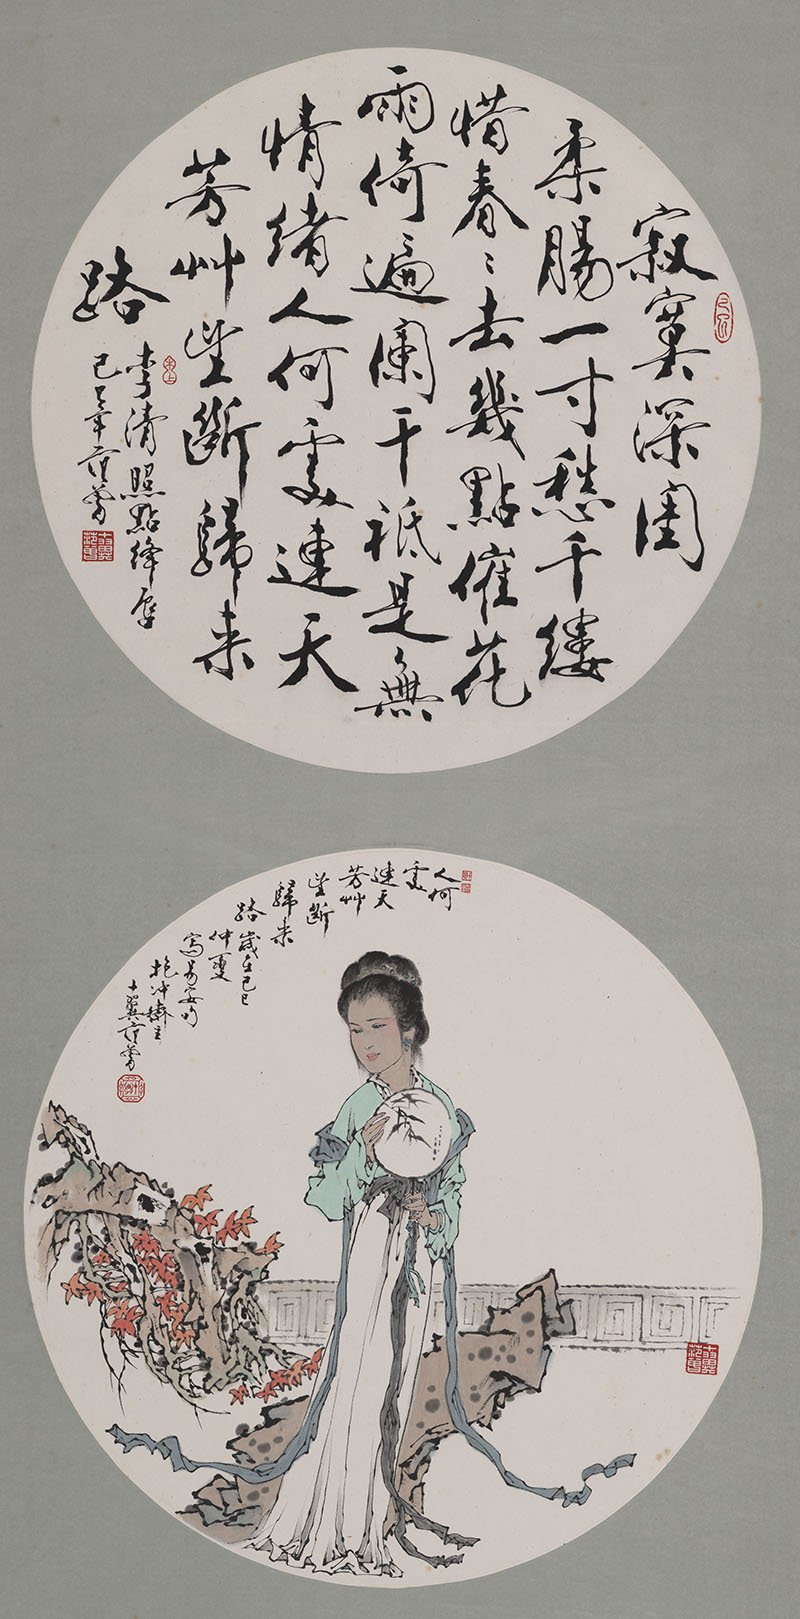 寂寞深閨
柔腸一寸愁千縷
惜春〻去幾點催花
雨倚遍闌干祗是無
情緒人何處連天
芳艸望斷歸来
路
李清照點絳唇
己巳年范曾
人何
處
連天
芳艸
望斷
歸来
路歲在己巳
仲夏
寫易安句
抱冲齋主
十翼范曾